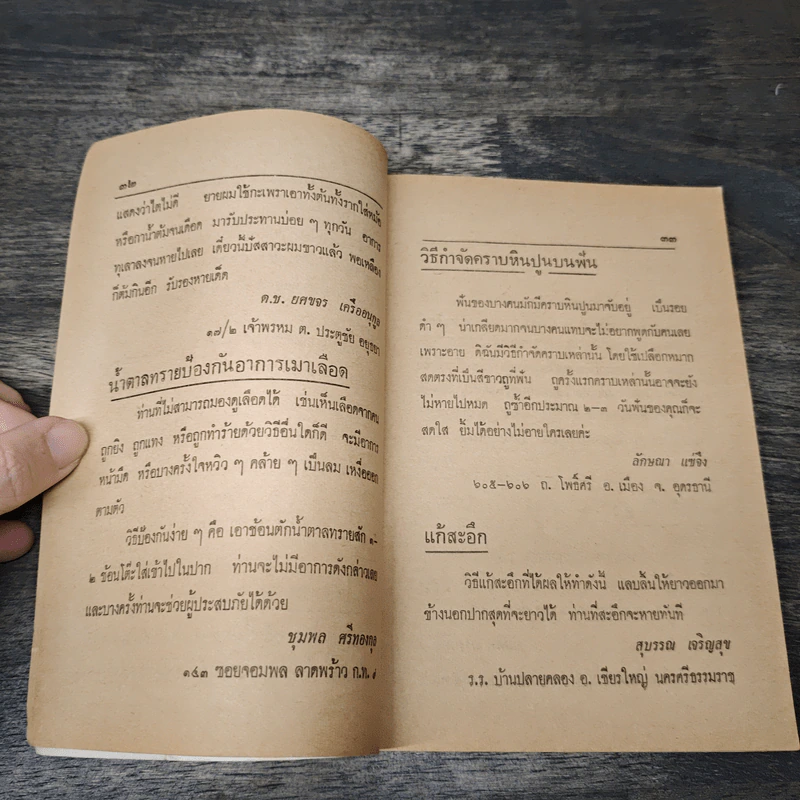 ๓๒
แสดงว่าไตไม่ดี ยายผมใช้กะเพราเอาทั้งต้นทั้งรากใส่หม้อ
หรือกาน้ำต้มจนเดือด มารับประทานบ่อย ๆ ทุกวัน อาการ
ทุเลาลงจนหายไปเลย เดี๋ยวนี้ปัสสาวะผมขาวแล้ว พอเหลือง
ก็ต้มกินอีก รับรองหายเด็ด
ด.ช. ยศขจร เครืออนุกูล
๑๗/๒ เจ้าพรหม ต. ประตูชัย อยุธยา
น้ำตาลทรายป้องกันอาการเมาเลือด
ท่านที่ไม่สามารถมองดูเลือดได้ เช่นเห็นเลือดจากคน
ถูกยิง ถูกแทง หรือถูกทำร้ายด้วยวิธีอื่นใดก็ดี จะมีอาการ
หน้ามืด หรือบางครั้งใจหวิว ๆ คล้าย ๆ เป็นลม เหงื่อออก
ตามตัว
วิธีป้องกันง่าย ๆ คือ เอาช้อนตักน้ำตาลทรายสัก ๑-
๒ ช้อนโต๊ะใส่เข้าไปในปาก ท่านจะไม่มีอาการดังกล่าวเลย
และบางครั้งท่านจะช่วยผู้ประสบภัยได้ด้วย
ชุมพล ศรีทองกุล
๑๔๓ ซอยจอมพล ลาดพร้าว ก.ท. ๙
๓๓
วิธีกำจัดคราบหินปูนบนฟัน
ฟันของบางคนมักมีคราบหินปูนมาจับอยู่ เป็นรอย
ดำ ๆ น่าเกลียดมากจนบางคนแทบจะไม่อยากพูดกับคนเลย
เพราะอาย ดิฉันมีวิธีกำจัดคราบเหล่านั้น โดยใช้เปลือกหมาก
สดตรงที่เป็นสีขาวถูที่ฟัน ถูครั้งแรกคราบเหล่านั้นอาจจะยัง
ไม่หายไปหมด ถูซ้ำอีกประมาณ ๒-๓ วันฟันของคุณก็จะ
สดใส ยิ้มได้อย่างไม่อายใครเลยค่ะ
ลักษณา แซ่จึง
๖๐๕-๖๐๖ ถ. โพธิ์ศรี อ. เมือง จ. อุดรธานี
แก้สะอึก
วิธีแก้สะอึกที่ได้ผลให้ทำดังนี้ แลบลิ้นให้ยาวออกมา
ข้างนอกปากสุดที่จะยาวได้ ท่านที่สะอึกจะหายทันที
สุบรรณ เจริญสุข
ร.ร. บ้านปลายคลอง อ. เชียรใหญ่ นครศรีธรรมราช